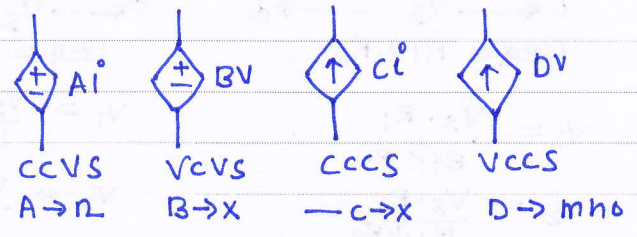 Ai Bv Ci Dv
CCVS VCVS CCCS VCCS
A→Ω B→X — C→X D→ mho